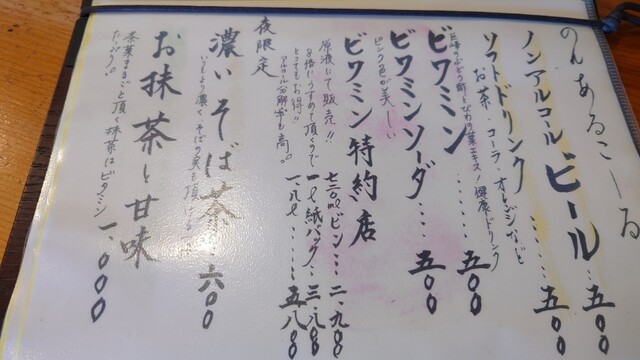 のんあるこーる
ノンアルコールビール‥五〇〇
ソフトドリンク‥‥‥五〇〇
お茶・コーラ・オレンジなど
ビワミン‥‥‥五〇〇
巨峰のぶどう酢とびわの葉エキス!健康ドリンク
ビワミンソーダ‥‥五〇〇
ピンク色が美しい
ビワミン特約店
原液にて販売!!
8倍にうすめて頂くので
とってもお得!!
アルコール分解率も高。
七二〇mlビン‥‥二、九〇〇
一ℓ紙パック‥三、八〇〇
一、八ℓ‥‥‥五、八〇〇
夜限定
濃いそば茶‥六〇〇
いつもより濃く、そばの実も頂ける
お抹茶と甘味
茶葉まるごと頂く抹茶はビタミン
たっぷり。
一、〇〇〇